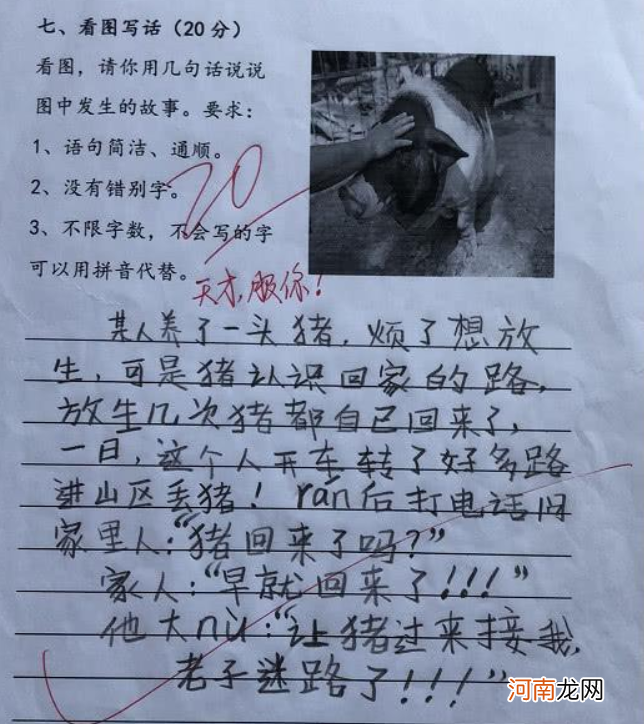 七、看图写话（20分）
看图，请你用几句话说说
图中发生的故事。要求：
1、语句简洁、通顺。
2、没有错别字。
3、不限字数，不会写的字
可以用拼音代替。
20
天才，服你！
某人养了一头猪，烦了想放
生，可是猪认识回家的路，
放生几次猪都自己回来了，
一日，这个人开车转了好多路
进山区丢猪！rán后打电话问
家里人：“猪回来了吗？”
家人：“早就回来了！！！”
他大nù：“让猪过来接我，
老子迷路了！！！”
河南龙网